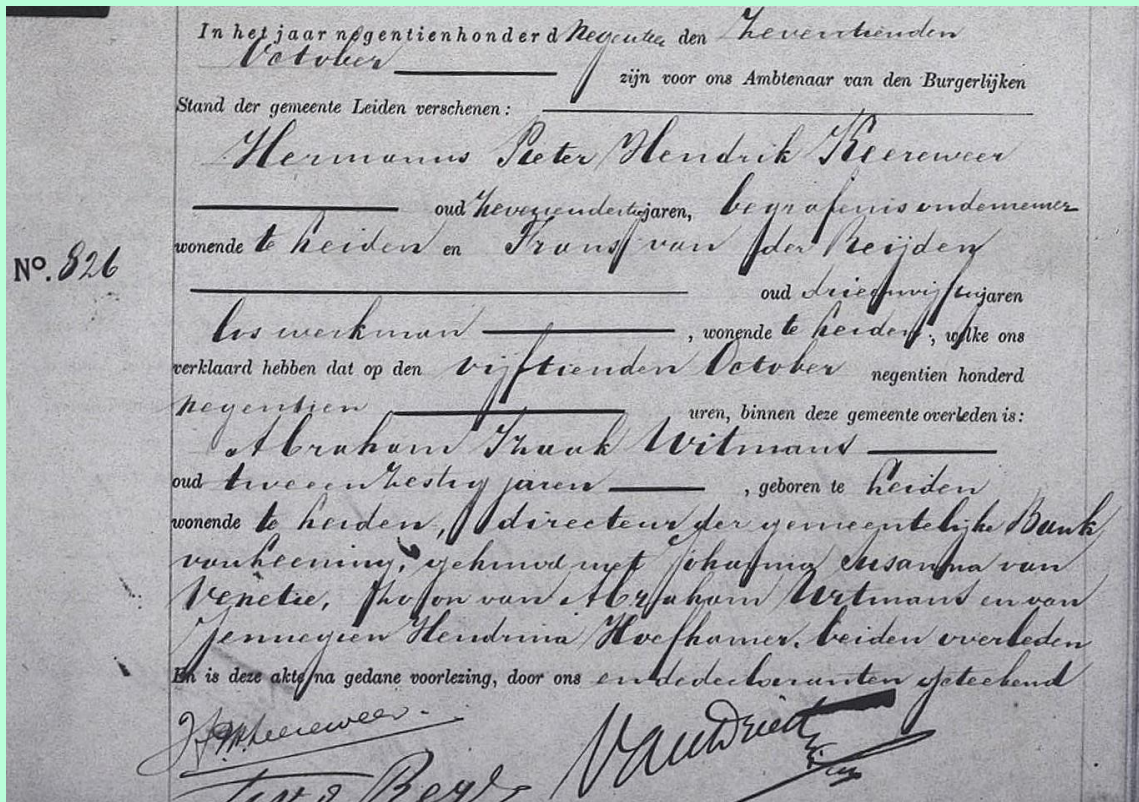 In het jaar negentienhonderd Negentien den Zeventienden
October zijn voor ons Ambtenaar van den Burgerlijken
Stand der gemeente Leiden verschenen:
Hermanus Pieter Hendrik Keereweer
oud zevenendertig jaren, begrafenisondernemer
wonende te Leiden en Frans van der Reijden
No. 826
oud drieenvijftig jaren
los werkman, wonende te Leiden, welke ons
verklaard hebben dat op den vijftienden October negentien honderd
negentien uren, binnen deze gemeente overleden is:
Abraham Izaak Witmans
oud tweeenzestig jaren, geboren te Leiden
wonende te Leiden, directeur der gemeentelijke Bank
van leening, gehuwd met Johanna Susanna van
Venetie, zoon van Abraham Witmans en van
Jennegien Hendrina Hoefhamer, beiden overleden
En is deze akte na gedane voorlezing, door ons en de declaranten geteekend
Keereweer